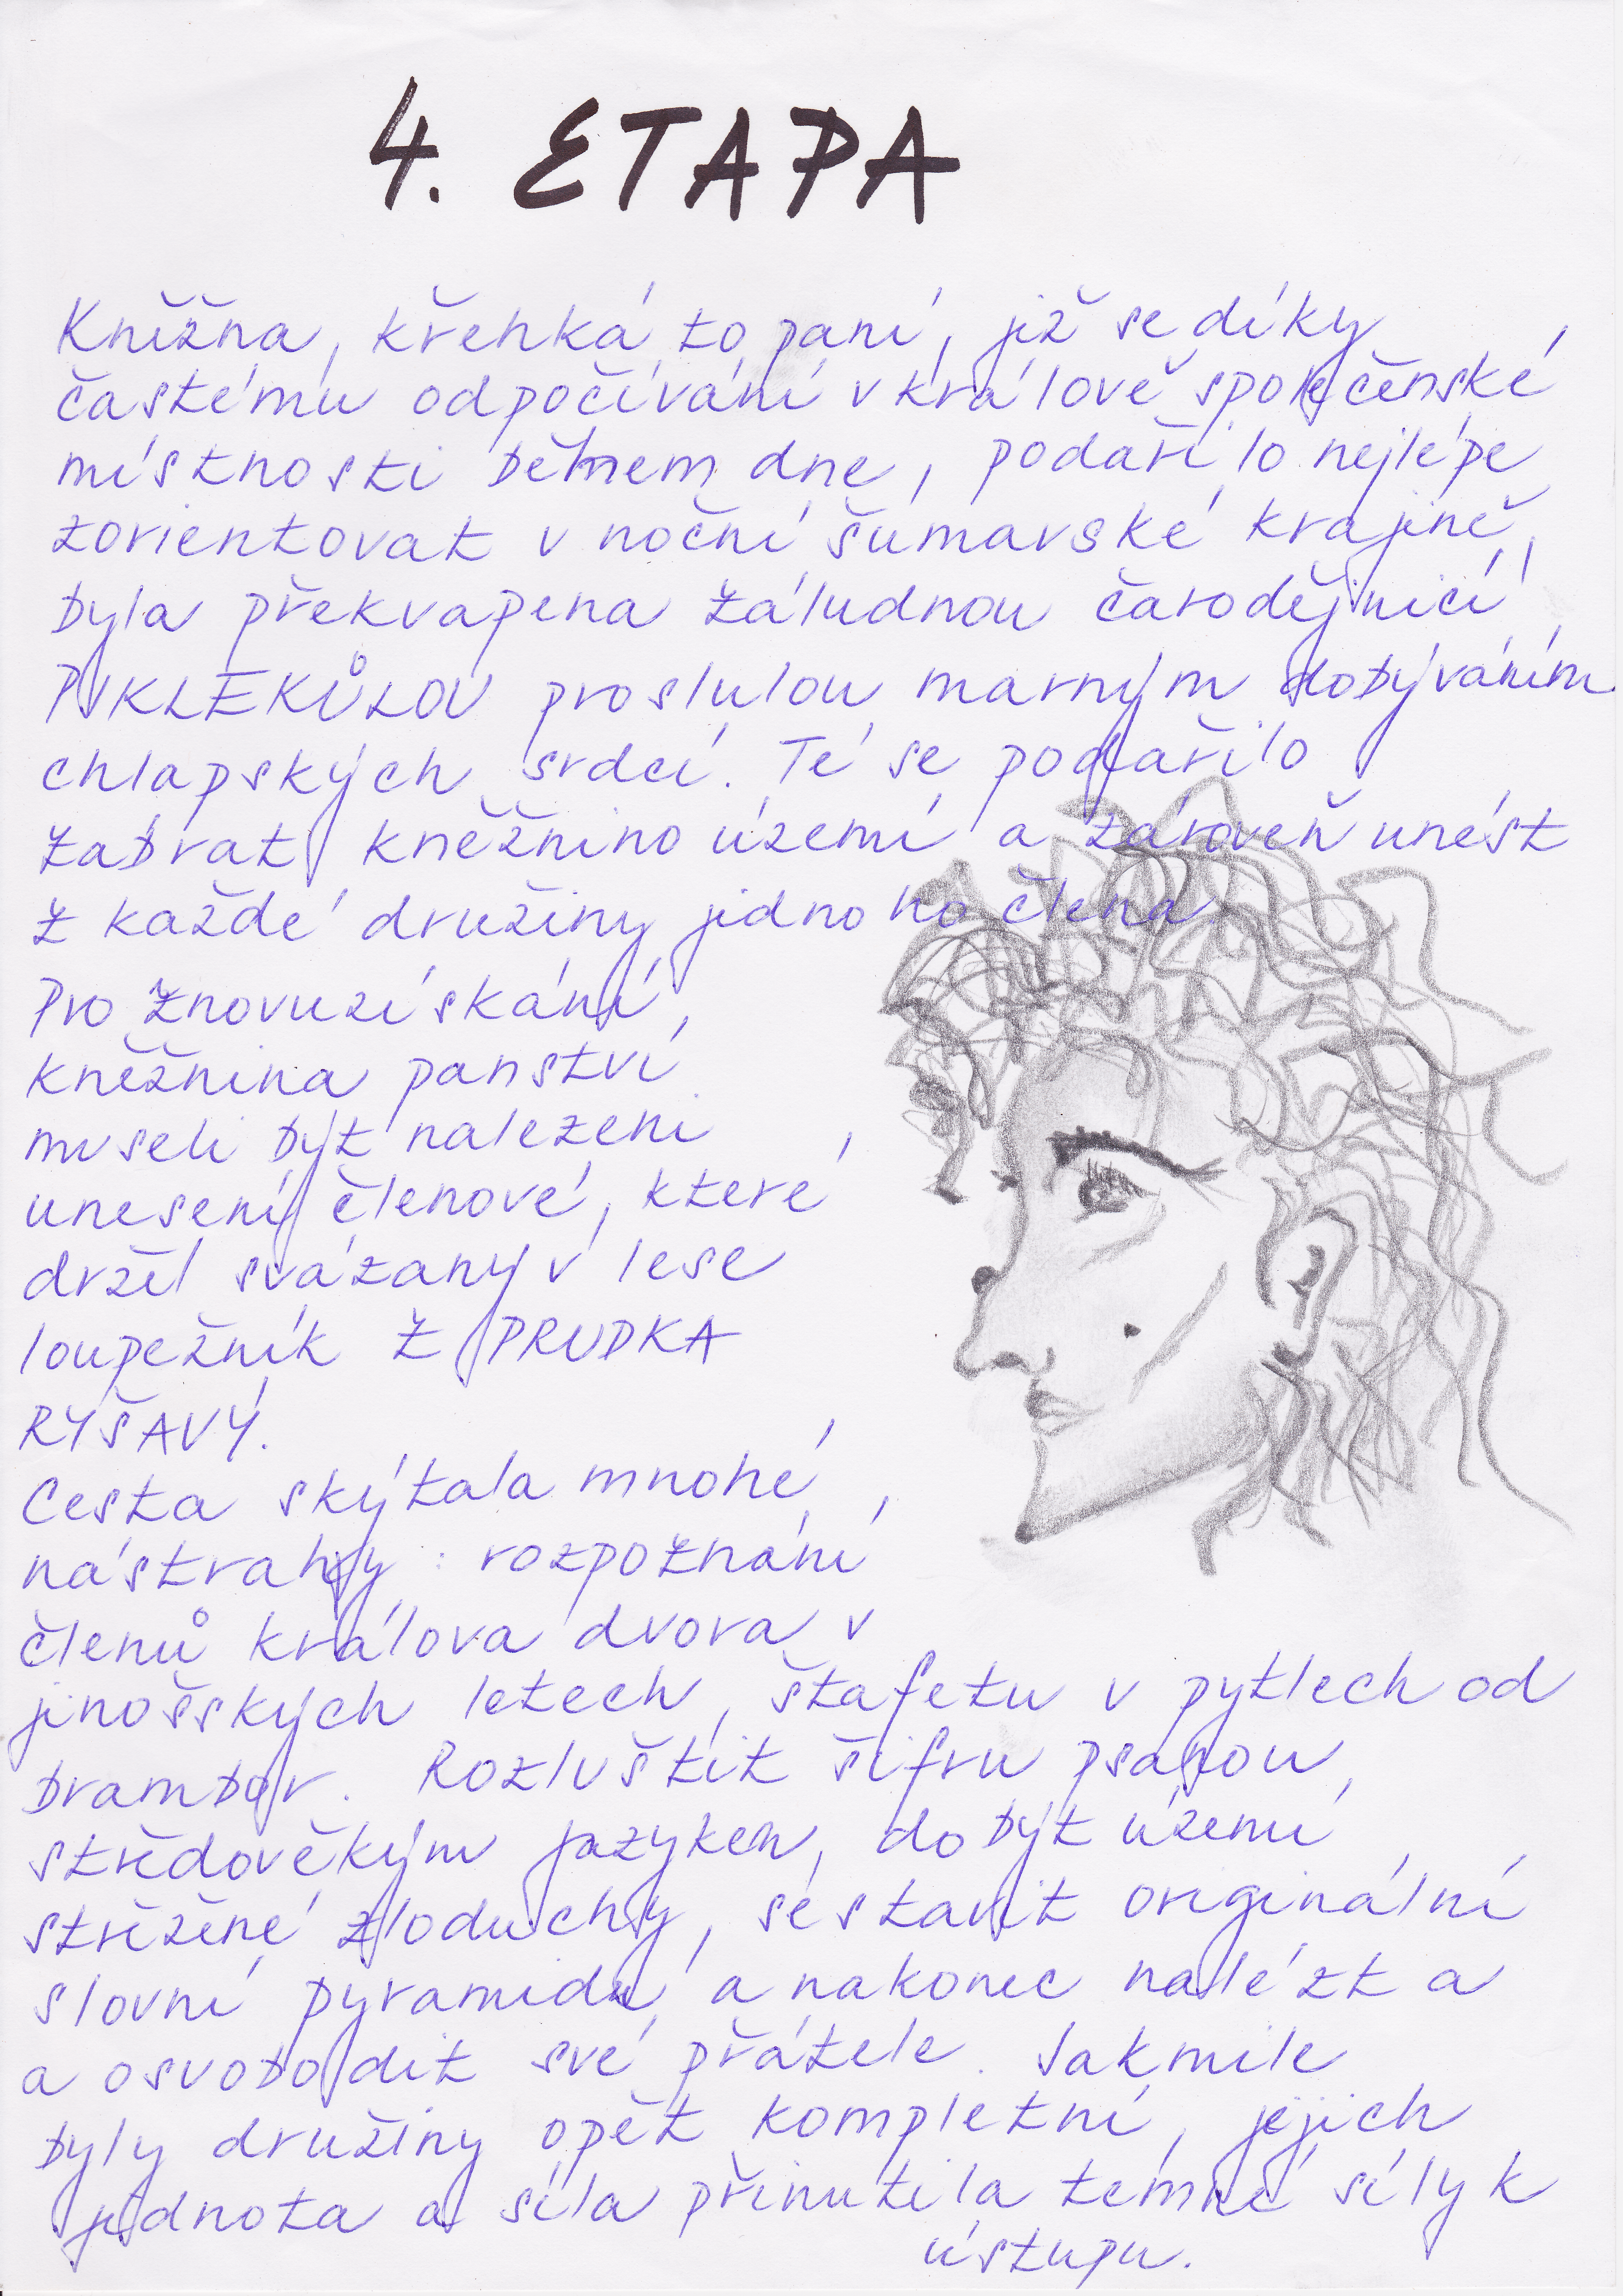 4. ETAPA
Kněžna, křehká to paní, jíž se díky
častému odpočívání v králově společenské
místnosti během dne, podařilo nejlépe
zorientovat v noční šumavské krajině,
byla překvapena záludnou čarodějnicí
PYKLEKŮLOU proslulou marným dobýváním
chlapských srdcí. Té se podařilo
zabrat kněžnino území a zároveň unést
z každé družiny jednoho člena.
Pro znovuzískání
kněžnina panství
museli být nalezeni
unesení členové, které
držel svázany v lese
loupežník Z PRUDKA
RYŠAVÝ.
Cesta skýtala mnohé
nástrahy: rozpoznání
členů králova dvora v
jinošských letech, štafetu v pytlech od
brambor. Rozluštit šifru psanou
středověkým jazykem, dobýt území
střežené zloduchy, sestavit originální
slovní pyramidu a nakonec nalézt a
a osvobodit své přátele. Jakmile
byly družiny opět kompletní, jejich
jednota a síla přinutila temné síly k
ústupu.